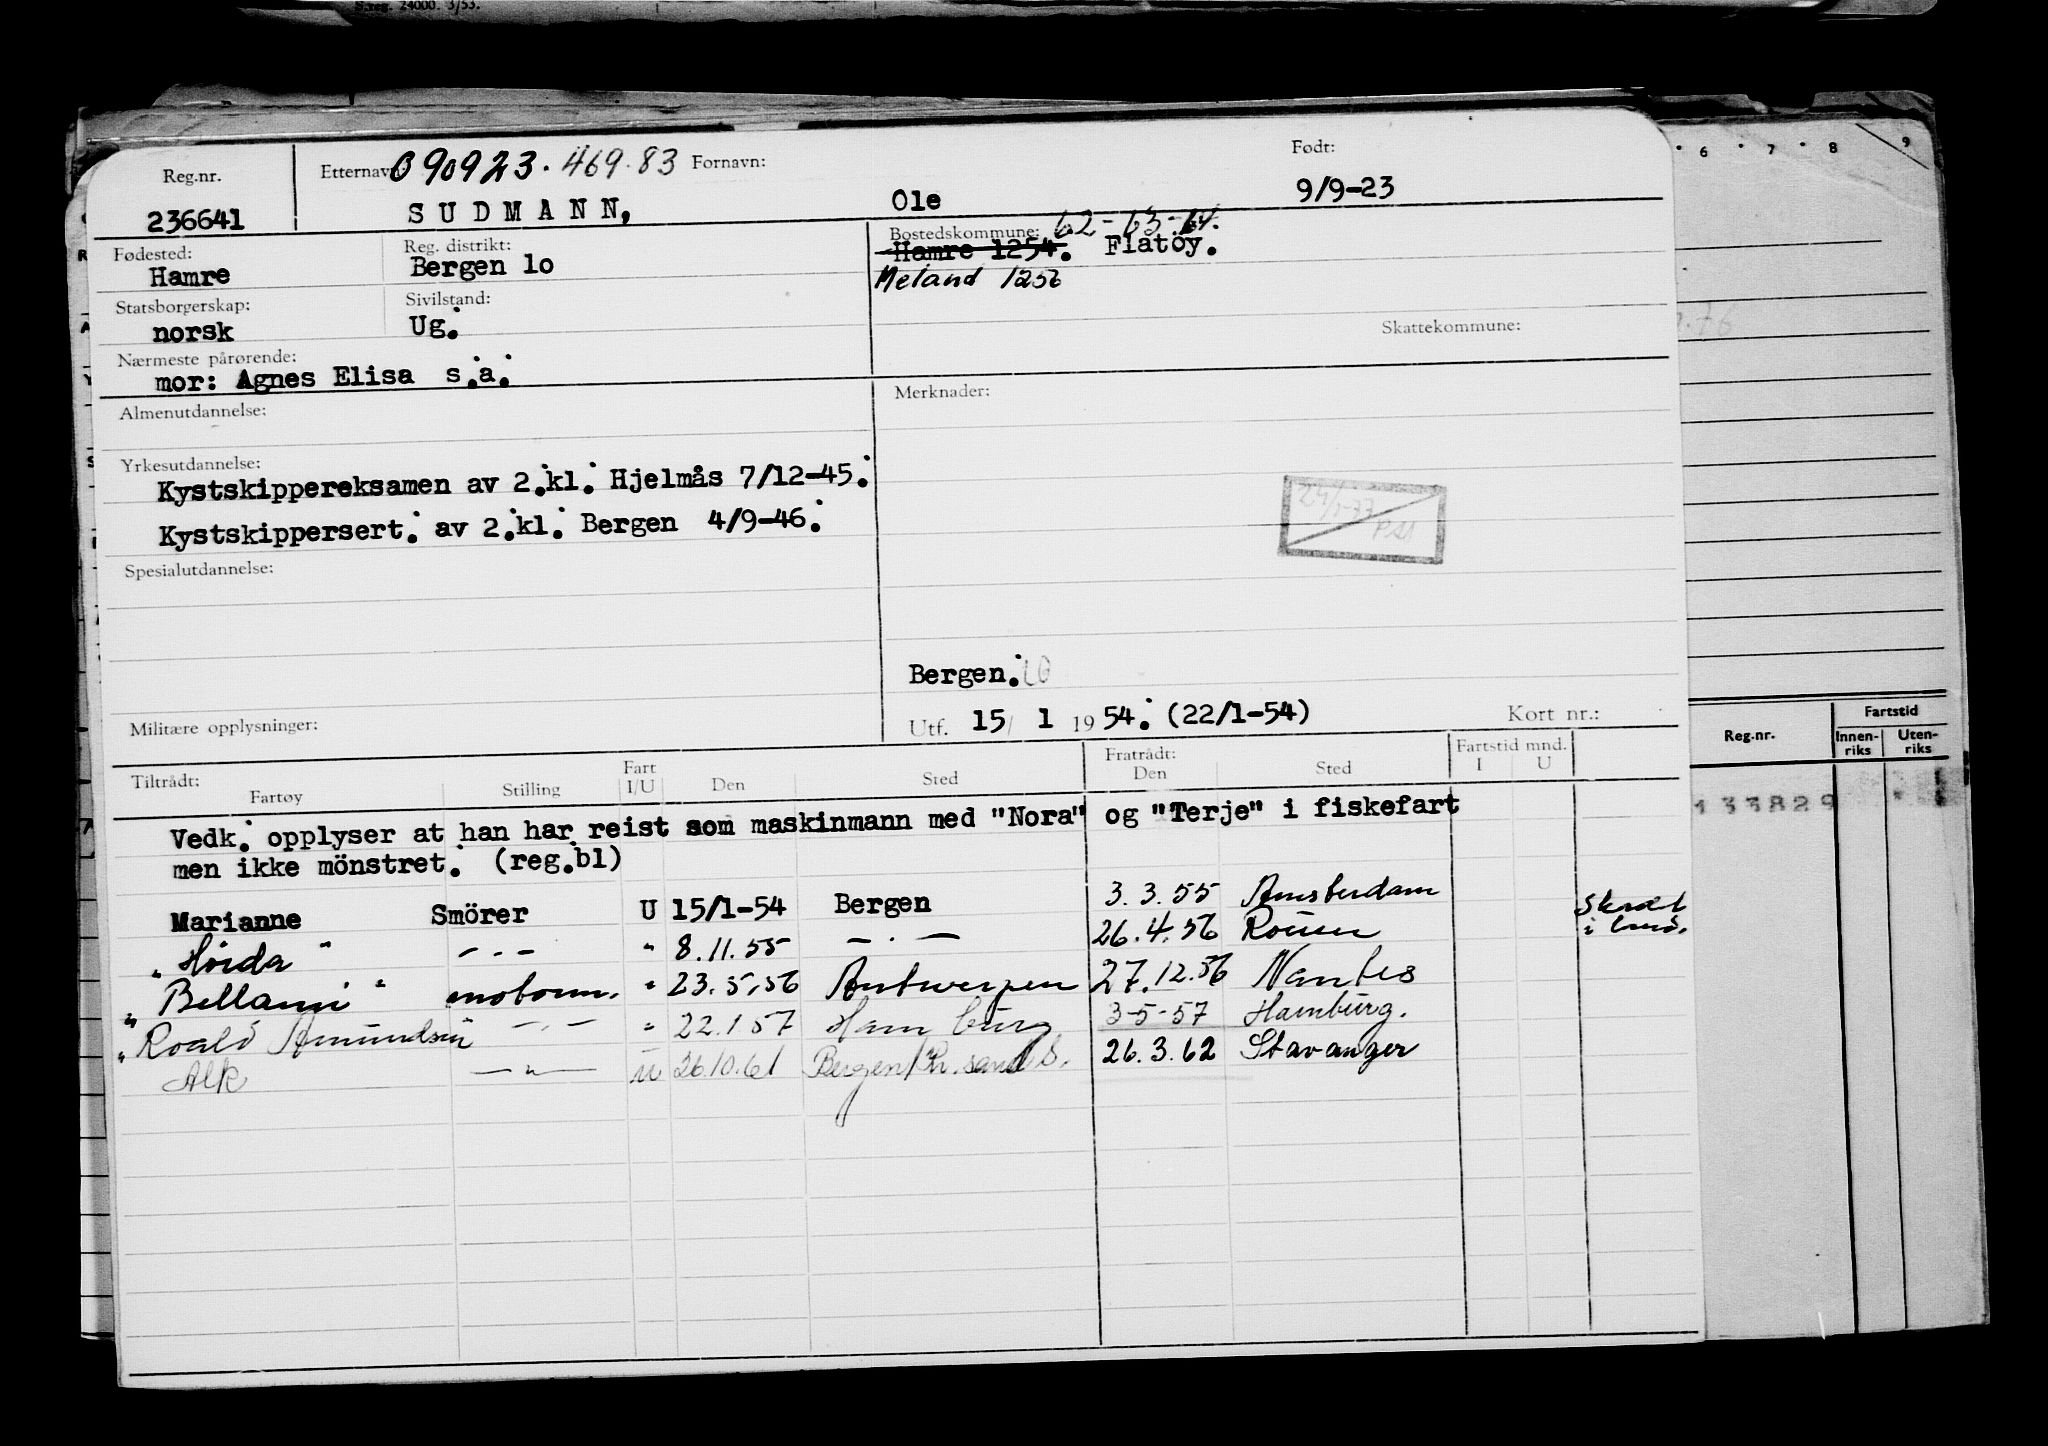 S.reg. 24000. 3/53.
Reg.nr. Etternavn 090923.469.83 Fornavn: Født:
236641 SUDMANN, Ole 9/9-23
Fødested: Reg. distrikt: Bostedskommune: 62-63-64.
Hamre Bergen lo Hamre 1254. Flatöy.
Meland 1256
Statsborgerskap: Sivilstand:
norsk Ug. Skattekommune:
Nærmeste pårørende:
mor: Agnes Elisa s.a.
Almenutdannelse: Merknader:
Yrkesutdannelse:
Kystskippereksamen av 2.kl. Hjelmås 7/12-45.
Kystskippersert. av 2.kl. Bergen 4/9-46.
24/1-77
Spesialutdannelse:
Bergen. 10
Militære opplysninger: Utf. 15/ 1 1954. (22/1-54) Kort nr.:
Tiltrådt: Fart Fratrådt: Fartstid mnd.
Fartøy Stilling I/U Den Sted Den Sted I U
Vedk. opplyser at han har reist som maskinmann med "Nora" og "Terje" i fiskefart
men ikke mönstret. (reg.bl)
Marianne Smörer U 15/1-54 Bergen 3.3.55 Amsterdam
"Hörda" - . - " 8.11.55 - . - 26.4.56 Rouen
"Bellami" motorm. " 23.5.56 Antwerpen 27.12.56 Nantes
"Roald Amundsen - . - " 22.1 57 Hamburg 3-5-57 Hamburg.
Alk - " - U 26.10.61 Bergen/Kr.sand S. 26.3.62 Stavanger
6 7 8 9
Reg.nr. Fartstid
Innen-riks Uten-riks
133829